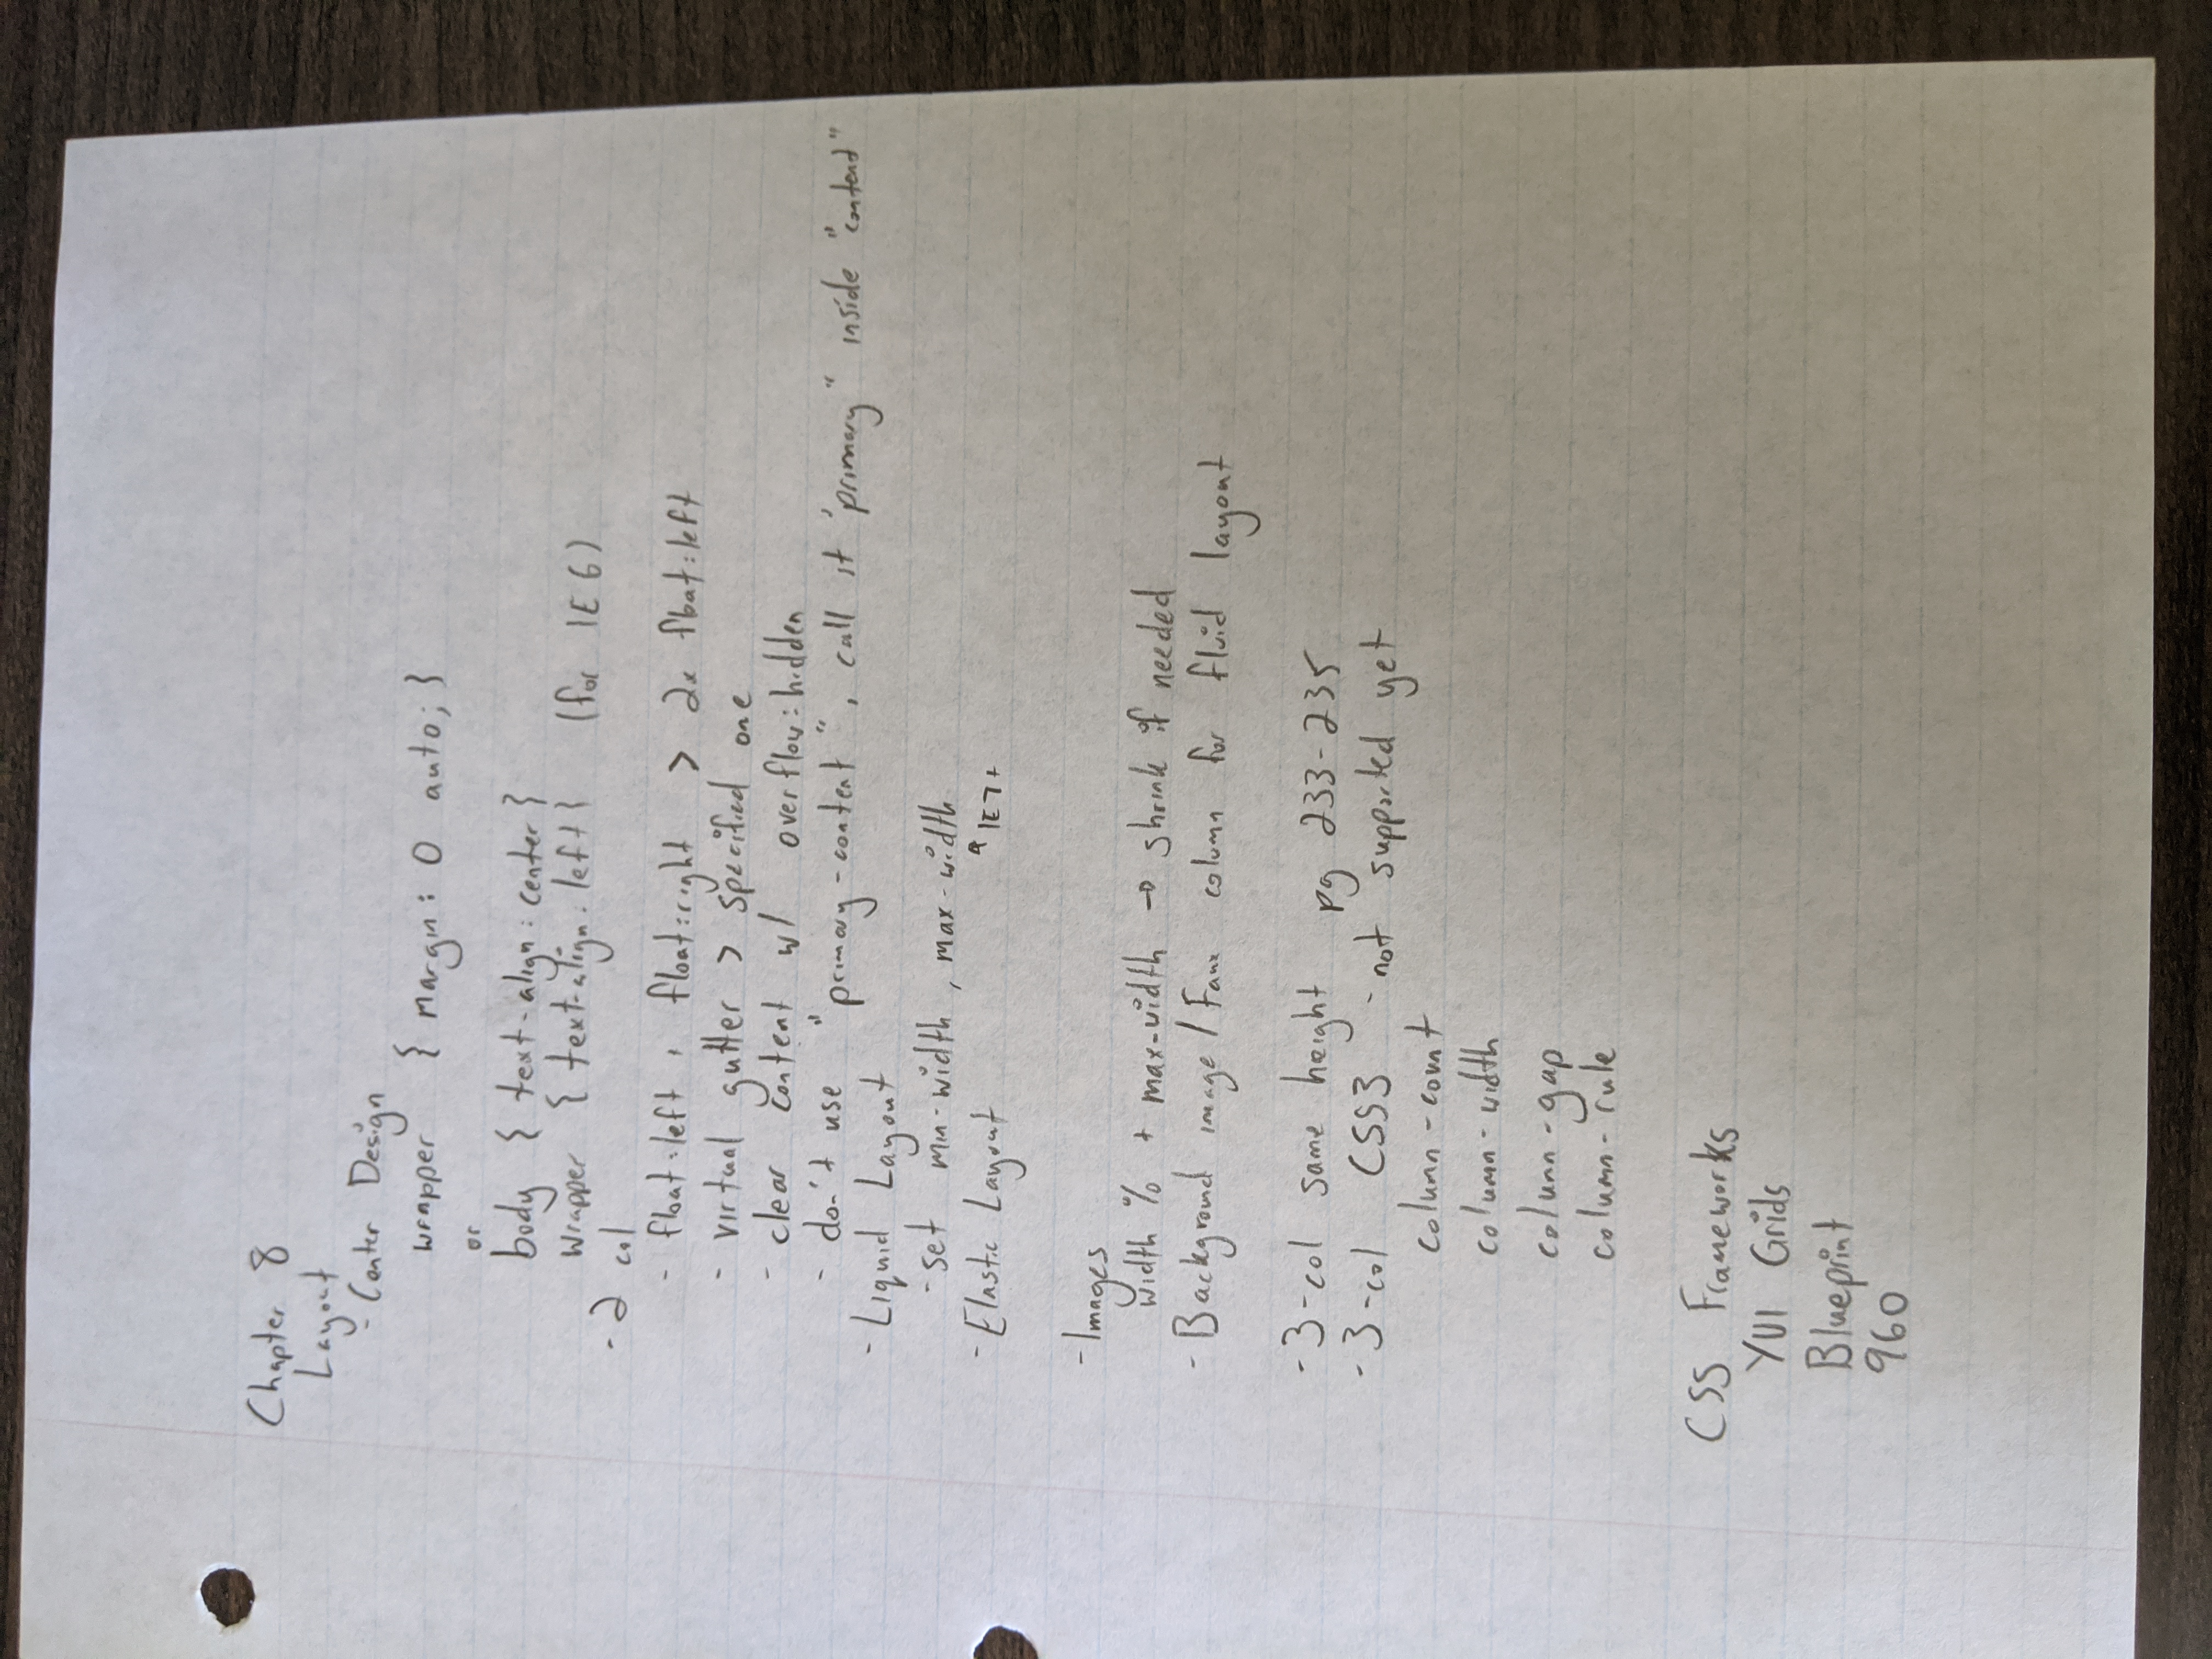 Chapter 8
Layout
- Center Design
wrapper { margin: 0 auto; }
or
body { text-align: center }
wrapper { text-align: left } (for IE 6)
- 2 col
- float:left, float:right > 2x float:left
- virtual gutter > specified one
- clear content w/ overflow:hidden
- don't use "primary-content", call it "primary" inside "content"
- Liquid Layout
- set min-width, max-width
- Elastic Layout
IE7+
- Images
width % + max-width → shrink if needed
- Background image / Faux column for fluid layout
- 3-col same height pg 233-235
- 3-col CSS3 - not supported yet
column-count
column-width
column-gap
column-rule
CSS Frameworks
YUI Grids
Blueprint
960